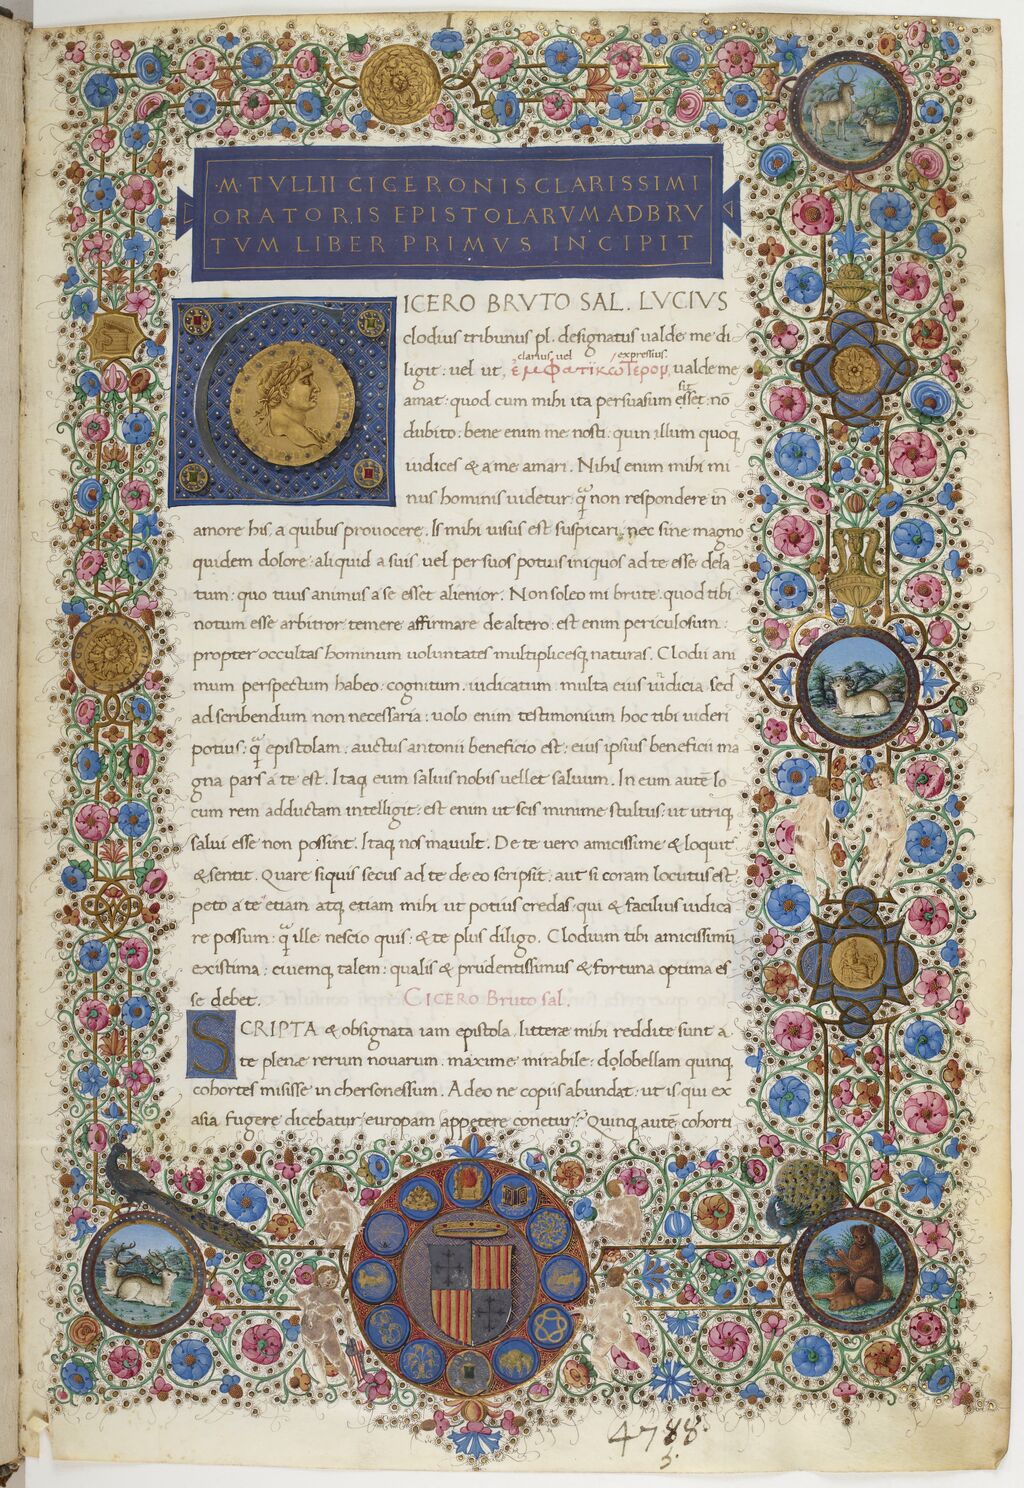 ·M· TVLLII CICERONIS CLARISSIMI
ORATORIS EPISTOLARVM AD BRV
TVM LIBER PRIMVS INCIPIT
CICERO BRVTO SAL. LVCIVS
clodius tribunus pl. designatus ualde me di
clarius uel expressius.
ligit: uel ut, ἐμφατικώτερον, ualde me
sit
amat: quod cum mihi ita persuasum esset: nō
dubito: bene enim me nosti: quin illum quoq
iudices & a me amari. Nihil enim mihi mi
nus hominis uidetur: q̄ non respondere in
amore his, a quibus prouocere. Is mihi uisus est suspicari, nec sine magno
quidem dolore: aliquid a suis uel per suos potius iniquos ad te esse dela
tum: quo tuus animus a se esset alienior. Non soleo mi brute: quod tibi
notum esse arbitror temere affirmare de altero: est enim periculosum:
propter occultas hominum uoluntates multiplicesq naturas. Clodii ani
mum perspectum habeo: cognitum: iudicatum: multa eius iudicia sed
ad scribendum non necessaria: uolo enim testimonium hoc tibi uideri
potius: q̄ epistolam: auctus antonii beneficio est: eius ipsius beneficii ma
gna pars a te est. Itaq eum saluis nobis uellet saluum. In eum autē lo
cum rem adductam intelligit: est enim ut scis minime stultus: ut utriq
salui esse non possint. Itaq nos mauult. De te uero amicissime & loquit
& sentit. Quare siquis secus ad te de eo scripsit: aut si coram locutus est:
peto a te etiam atq etiam mihi ut potius credas: qui & facilius iudica
re possum: q̄ ille nescio quis: & te plus diligo. Clodium tibi amicissimū
existima: ciuemq talem: qualis & prudentissimus & fortuna optima es
se debet. CICERO Bruto sal.
SCRIPTA & obsignata iam epistola, litteræ mihi reddite sunt a
te plenæ rerum nouarum. maxime mirabile: dolobellam quinq
cohortes misisse in chersonessum. Adeo ne copiis abundat: ut is qui ex
asia fugere dicebatur, europam appetere conetur? Quinq autē cohorti
4788